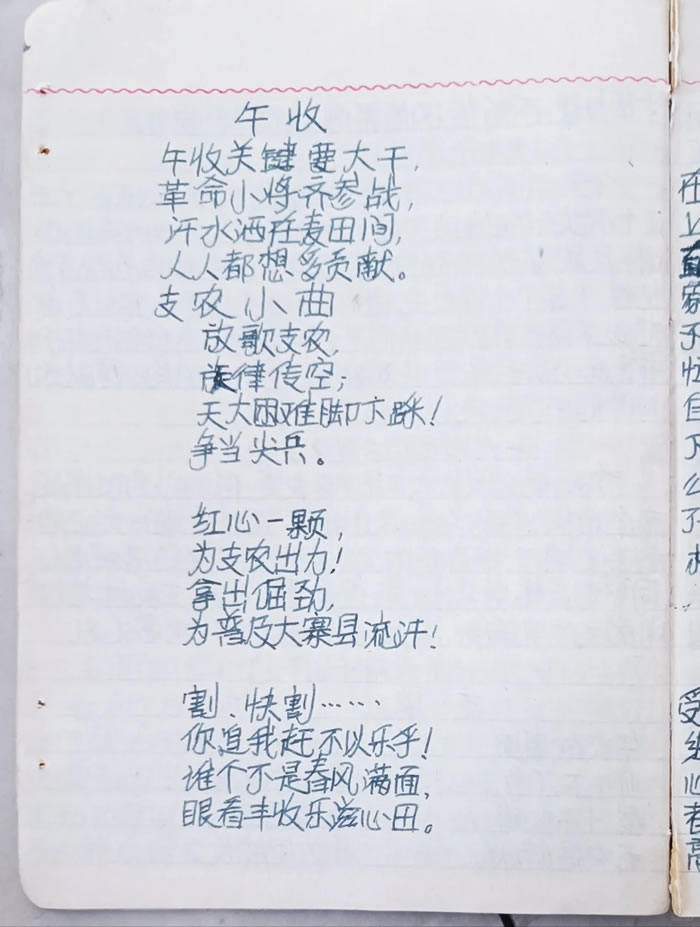 午收
午收关键要大干,
革命小将齐参战,
汗水洒在麦田间,
人人都想多贡献。
支农小曲
放歌支农,
旋律传空;
天大困难脚下踩!
争当尖兵。
红心一颗,
为支农出力!
拿出倔劲,
为普及大寨县流汗!
割、快割……
你追我赶不以乐乎!
谁个不是春风满面,
眼看丰收乐滋心田。
在
上
家
受
心
者
高